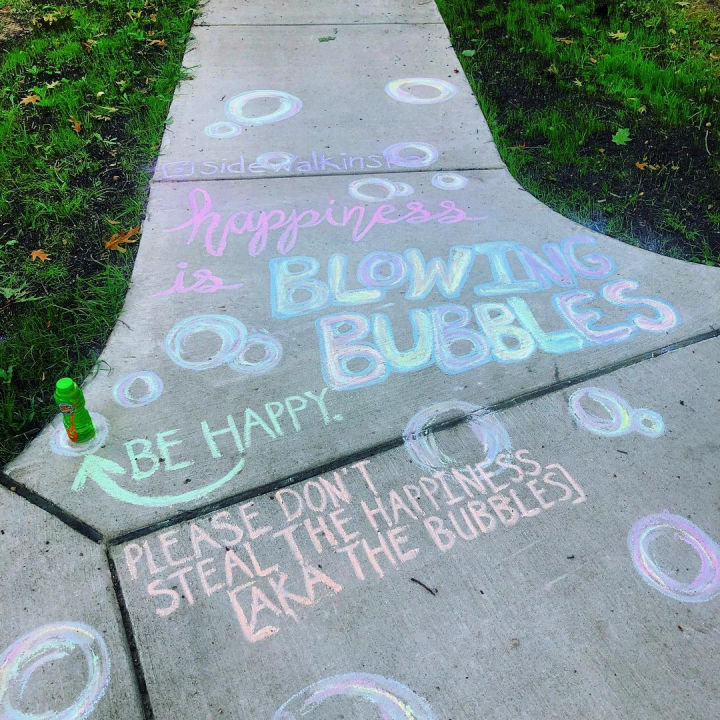 @Sidewalkinsk
happiness
is BLOWING
BUBBLES
BE HAPPY.
PLEASE DON'T
STEAL THE HAPPINESS
[AKA THE BUBBLES]